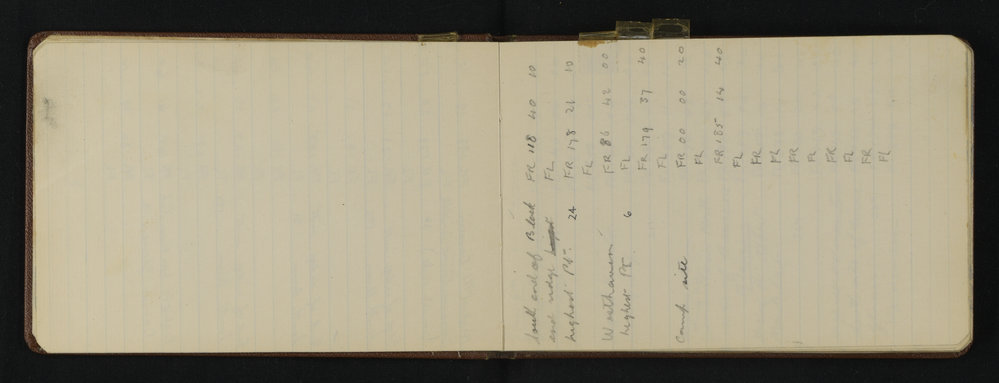 South end of Black FR 118 40 10
and ridge FL
highest Pt. 24 FR 178 21 10
FL
Westhaven FR 86 42 00
highest Pt 6 FL
FR 179 37 40
FL
Camp site FR 00 00 20
FL
FR 185 14 40
FL
FR
FL
FR
FL
FR
FL
FR
FL